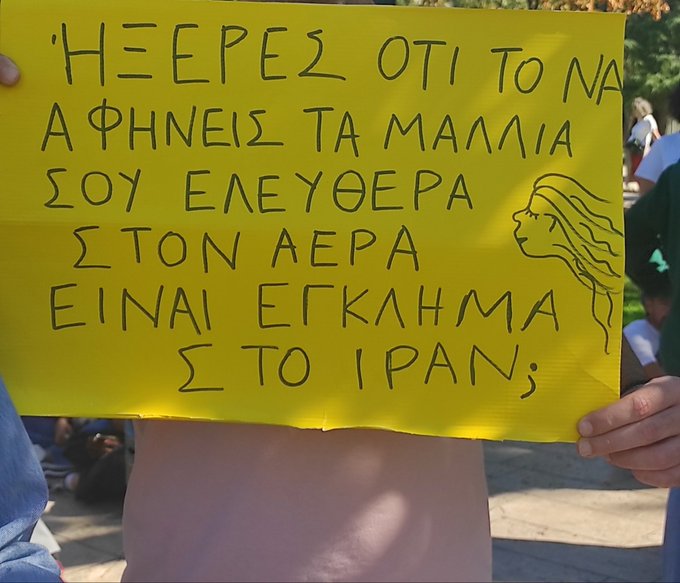 Ή͏ΞΕΡΕΣ ΟΤΙ ΤΟ ΝΑ
ΑΦΗΝΕΙΣ ΤΑ ΜΑΛΛΙΑ
ΣΟΥ ΕΛΕΥΘΕΡΑ
ΣΤΟΝ ΑΕΡΑ
ΕΙΝΑΙ ΕΓΚΛΗΜΑ
ΣΤΟ ΙΡΑΝ;